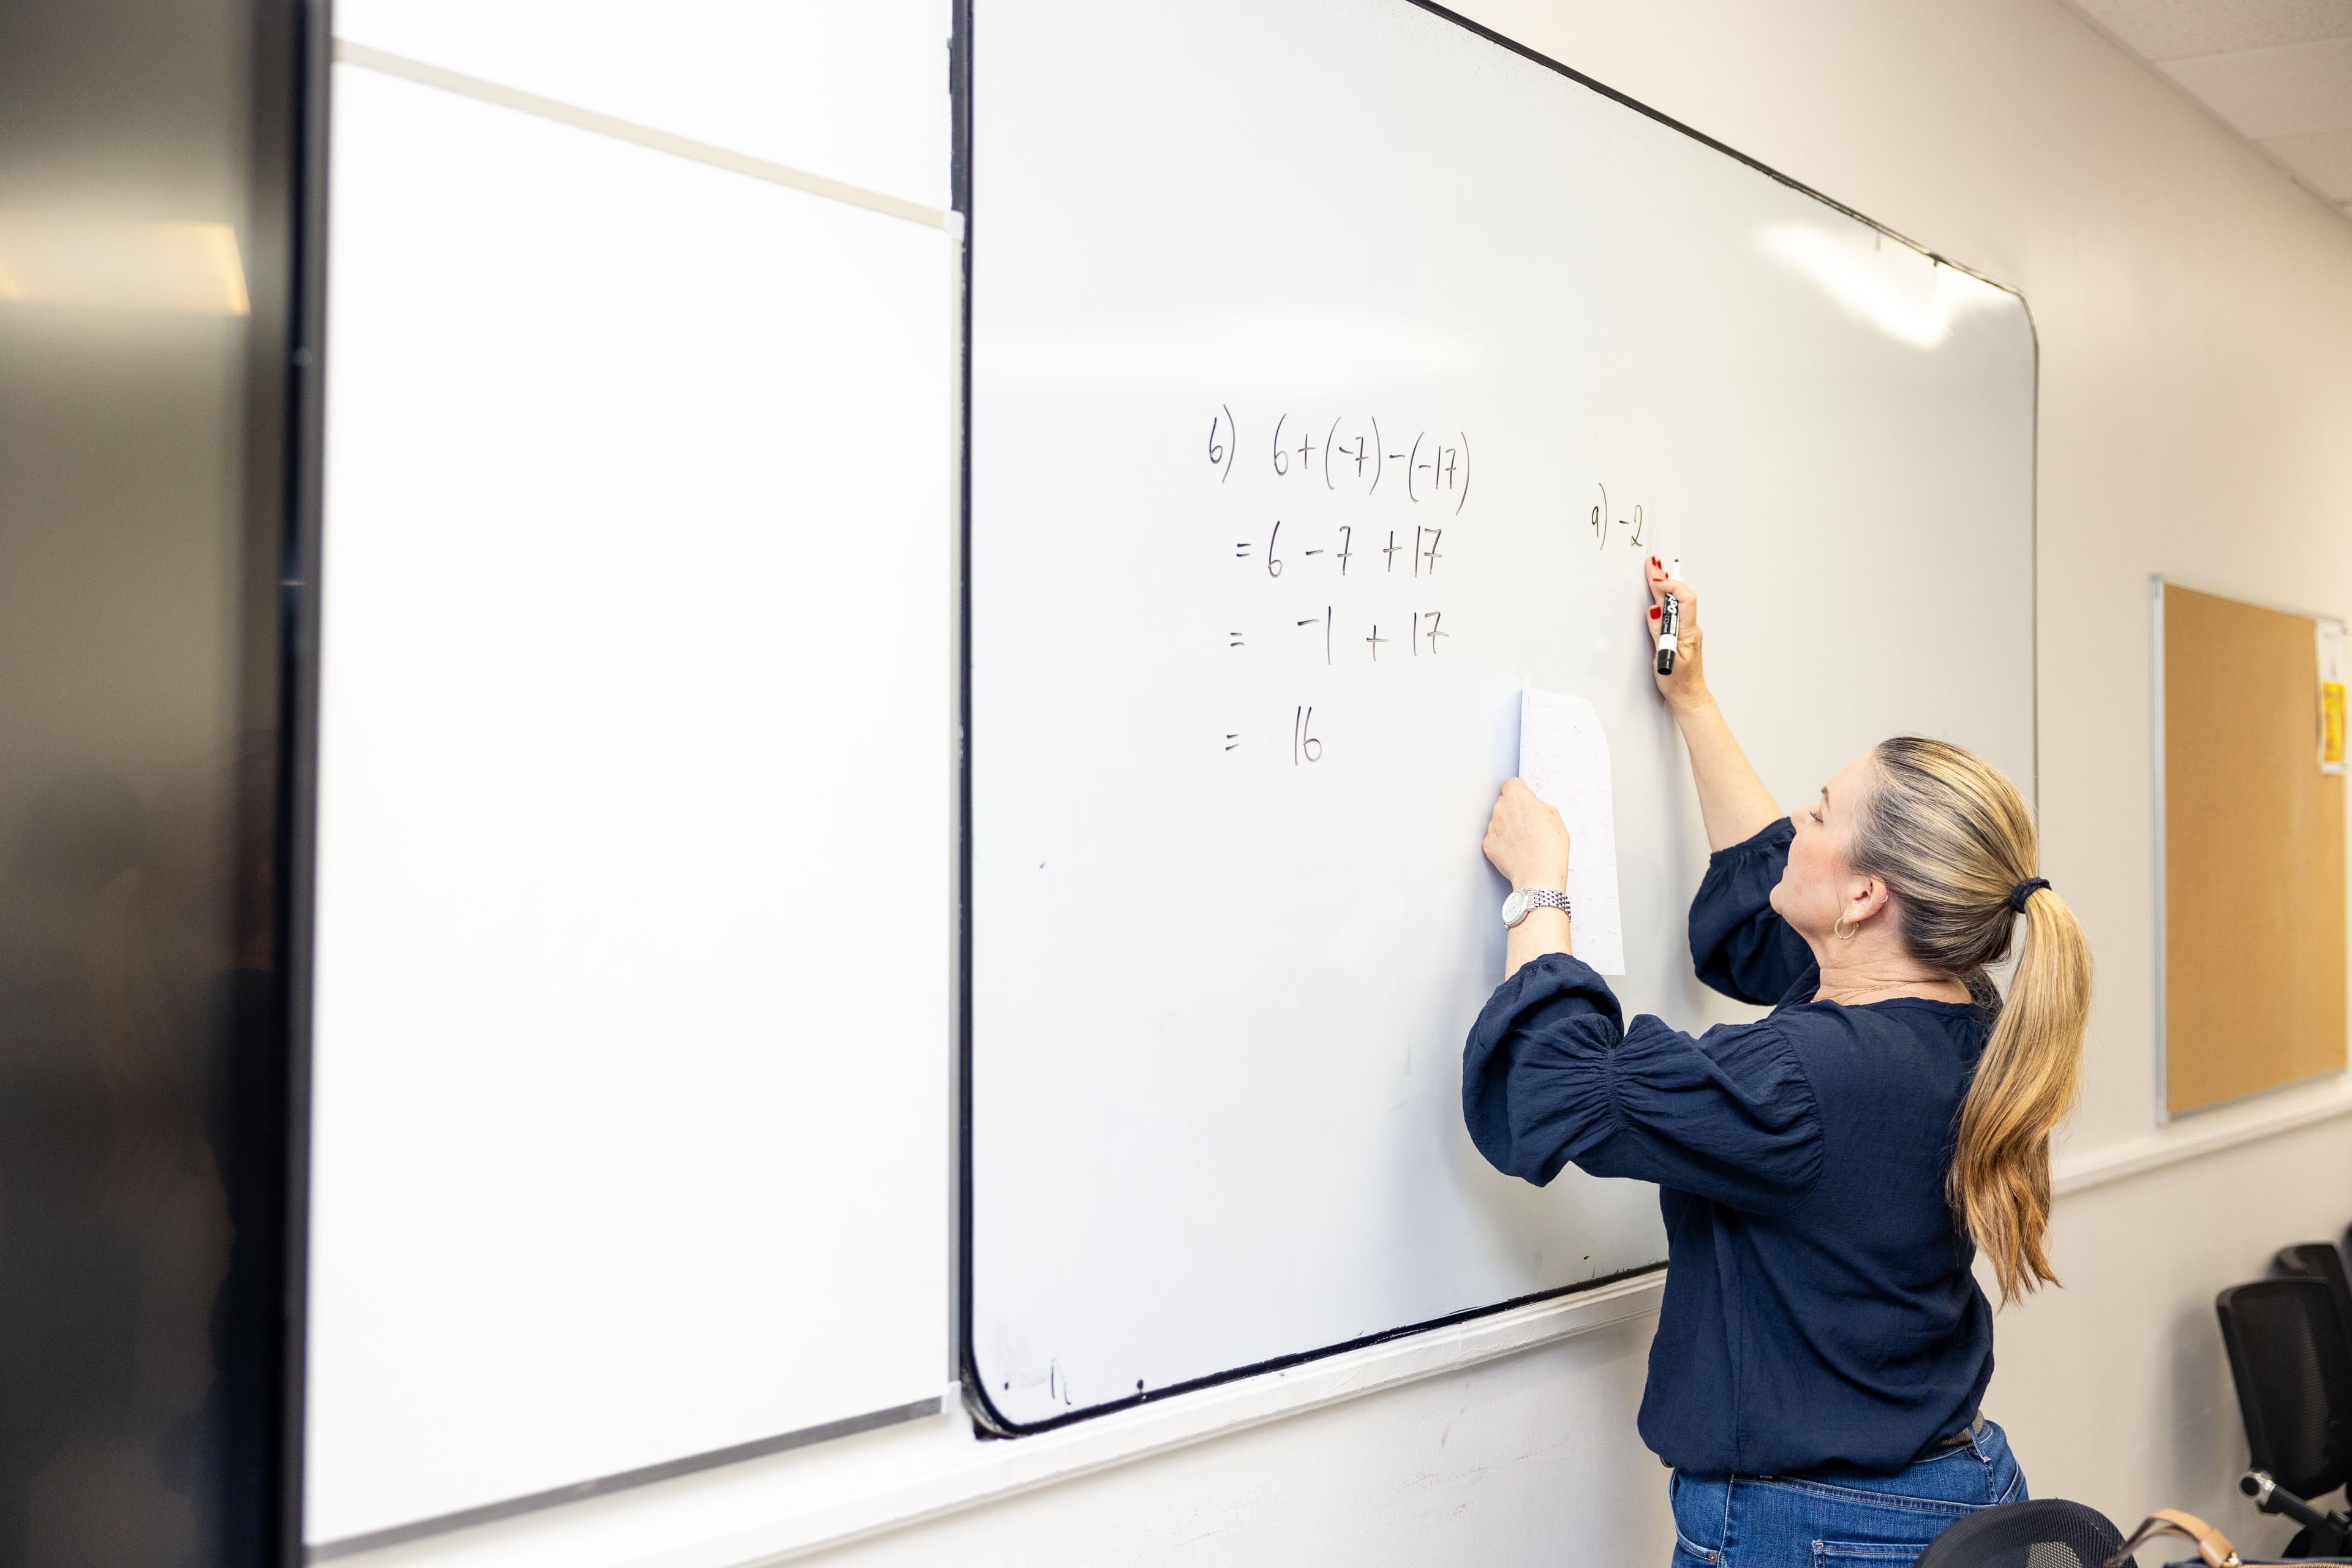 6) 6+(-7)-(-17)
= 6 - 7 + 17
= -1 + 17
= 16
9) -2